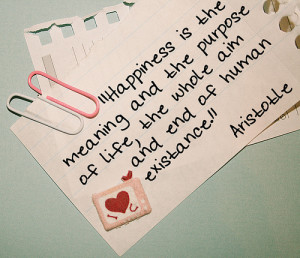 "Happiness is the
meaning and the purpose
of life, the whole aim
and end of human
existance."
Aristotle
I
C